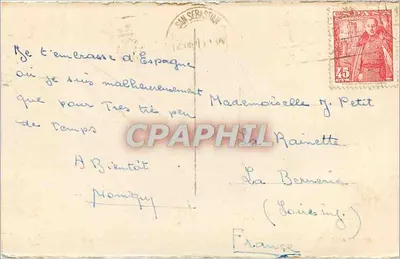 SAN SEBASTIAN
45
Je t'embrasse d'Espagne
où je suis malheureusement
que pour Très très peu
de temps
A Bientôt
Monique
Mademoiselle J. Petit
La Rainette
La Bernerie
(Loire Inf.)
France
CPAPHIL